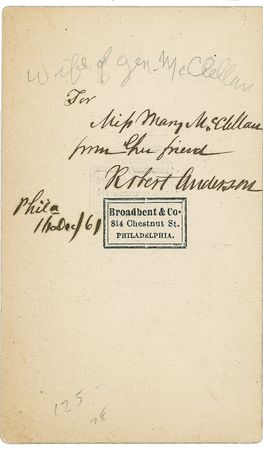 Wife of Gen. McClellan
For
Miss Mary McClellan
from her friend
Robert Anderson
Phila
16 Dec/61
Broadbent & Co
814 Chestnut St.
PHILADELPHIA.
125